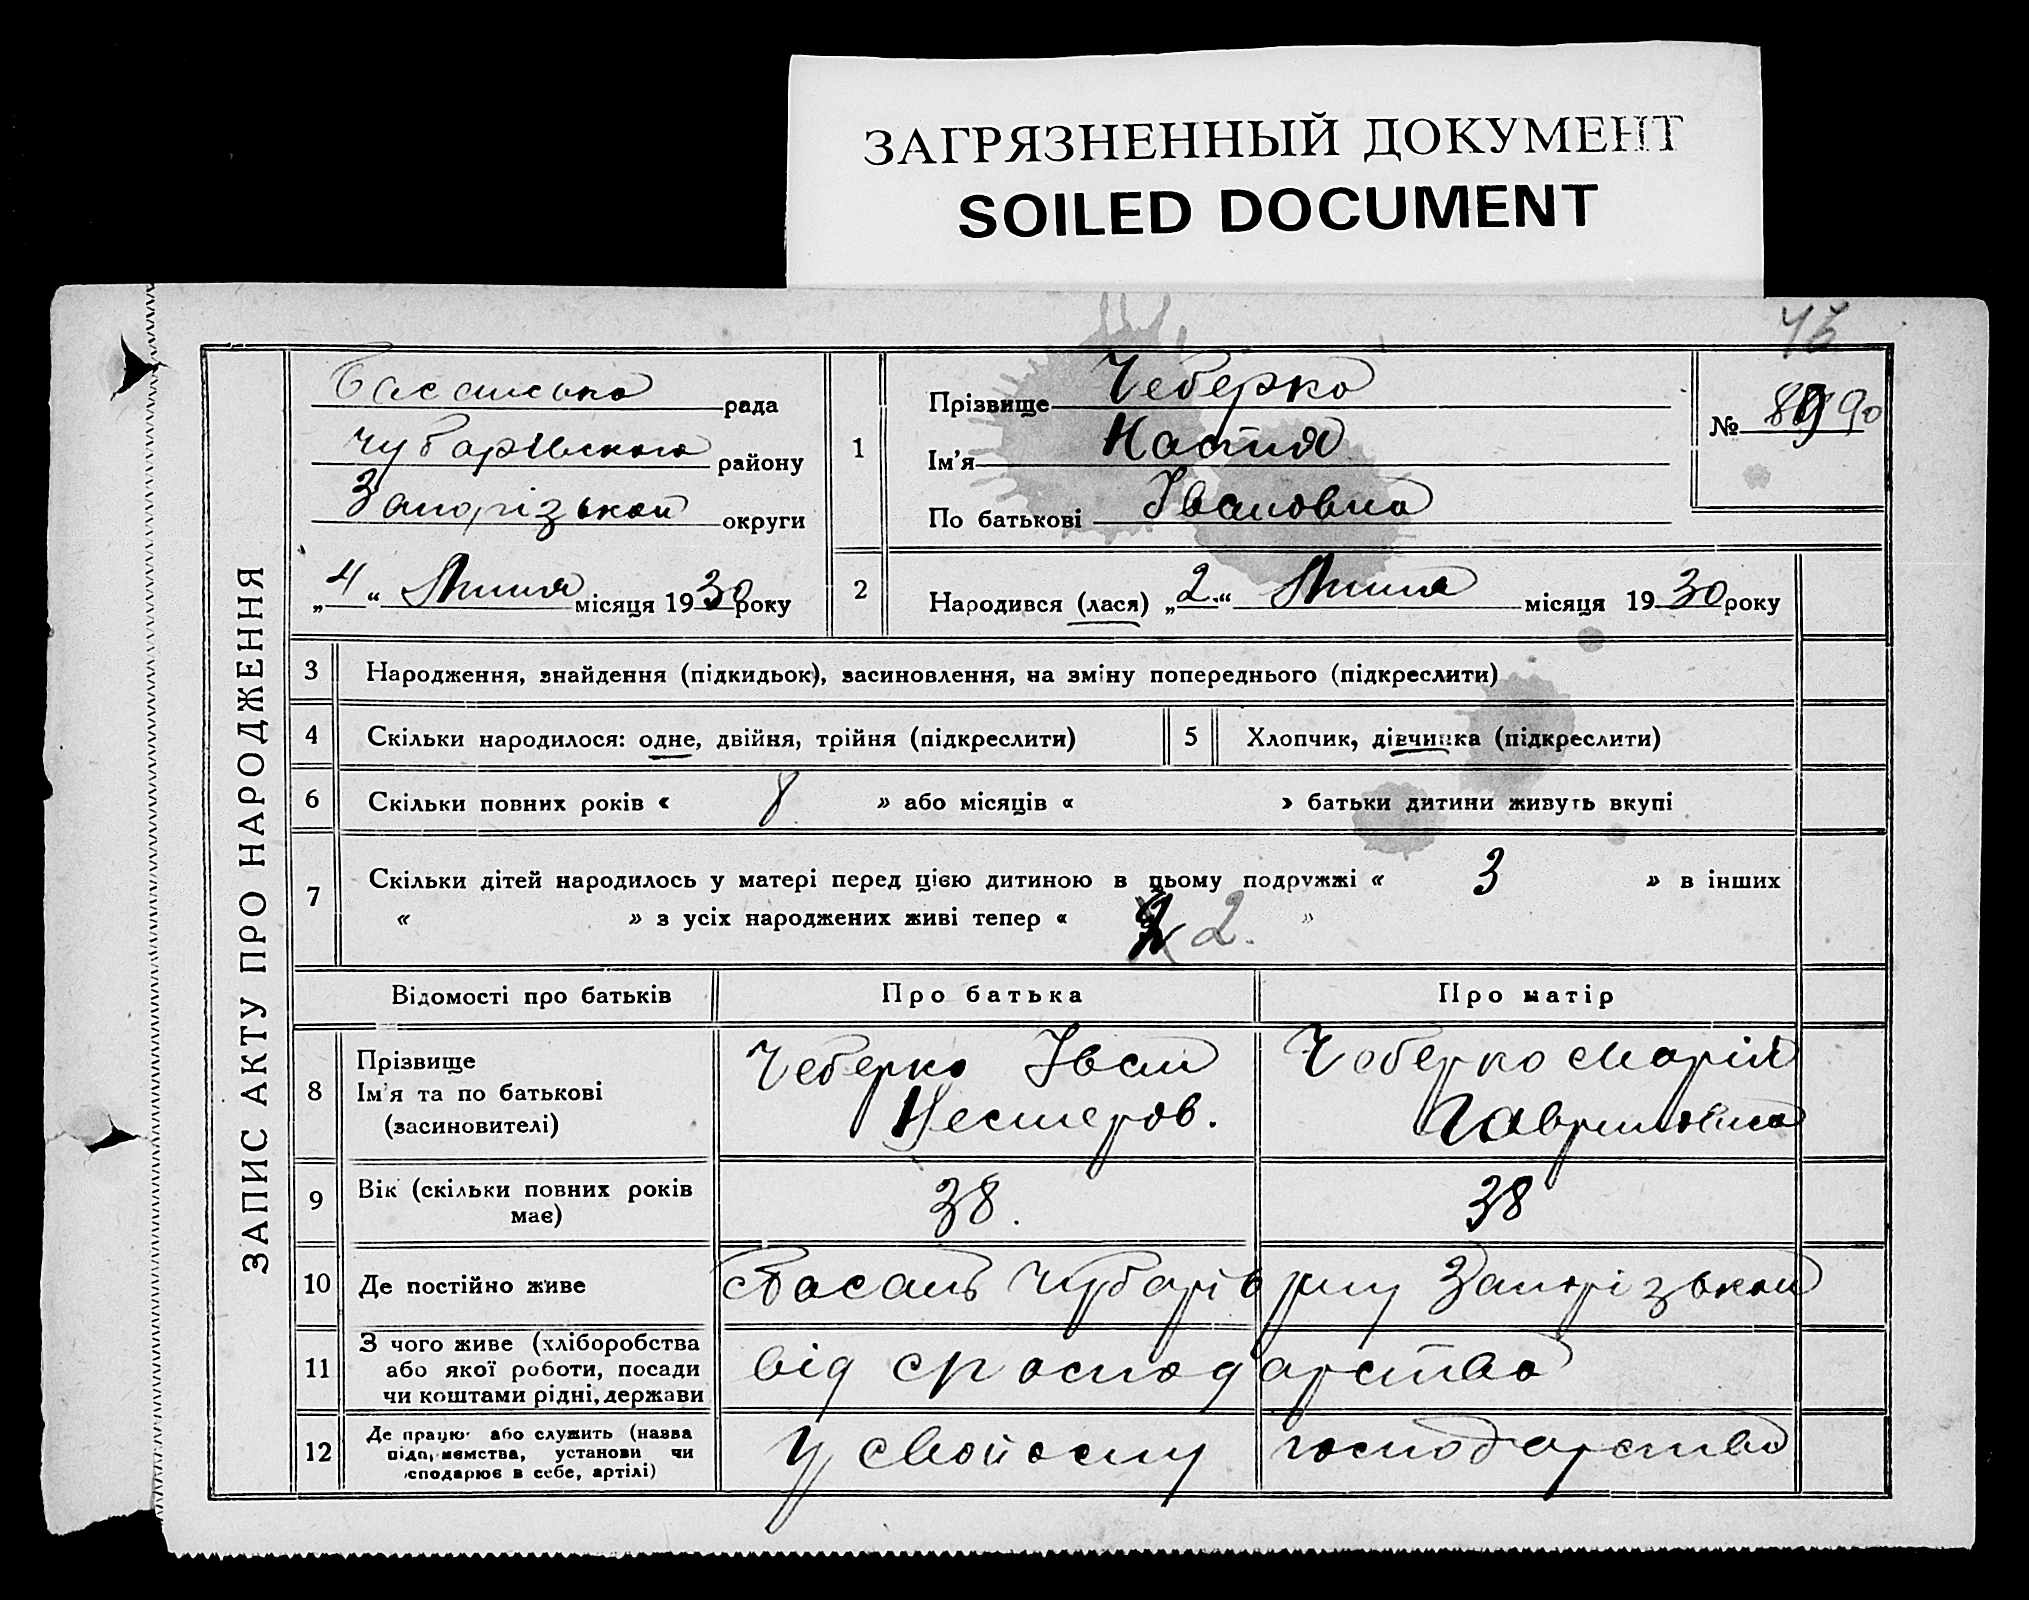 ЗАГРЯЗНЕННЫЙ ДОКУМЕНТ
SOILED DOCUMENT
ЗАПИС АКТУ ПРО НАРОДЖЕННЯ
Басанська рада
Чубарівського району
Запорізької округи
„4“ Липня місяця 1930 року
1
Прізвище Чеберко
Ім’я Настия
По батькові Івановна
№ 90
2
Народився (лася) „2“ Липня місяця 1930 року
3 Народження, знайдення (підкидьок), засиновлення, на зміну попереднього (підкреслити)
4 Скільки народилося: одне, двійня, трійня (підкреслити)
5 Хлопчик, дівчинка (підкреслити)
6 Скільки повних років « 8 » або місяців « » батьки дитини живуть вкупі
7 Скільки дітей народилось у матері перед цією дитиною в цьому подружжі « 3 » в інших
« » з усіх народжених живі тепер « 2. »
Відомості про батьків Про батька Про матір
8 Прізвище
Ім’я та по батькові
(засиновителі)
Чеберко Іван
Нестеров.
Чеберко Марія
Гавриловна
9 Вік (скільки повних років
має)
38.
38
10 Де постійно живе
с Басань Чубарів р-ну Запорізької
11 З чого живе (хліборобства
або якої роботи, посади
чи коштами рідні, держави
від сг господарства
12 Де працює або служить (назва
підприємства, установи чи
господарює в себе, артілі)
У свойому господарстві